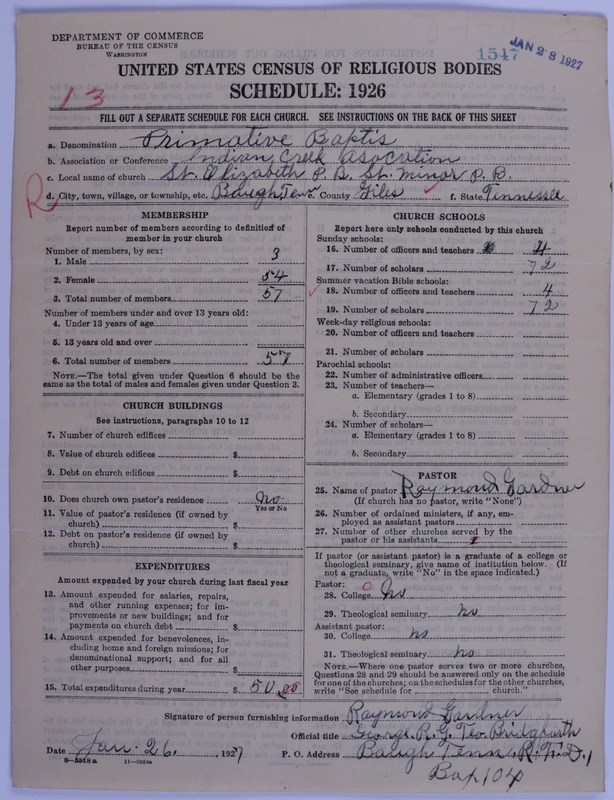 DEPARTMENT OF COMMERCE
BUREAU OF THE CENSUS
WASHINGTON
1547
JAN 28 1927
UNITED STATES CENSUS OF RELIGIOUS BODIES
SCHEDULE: 1926
13
FILL OUT A SEPARATE SCHEDULE FOR EACH CHURCH. SEE INSTRUCTIONS ON THE BACK OF THIS SHEET
a. Denomination Primative Baptis
b. Association or Conference Indian Creek Asocation
c. Local name of church St. Elizabeth P. B. St. Minor P. B.
R d. City, town, village, or township, etc. Baugh, Tenn e. County Giles f. State Tennessee
MEMBERSHIP
Report number of members according to definition of
member in your church
Number of members, by sex:
1. Male 3
2. Female 54
3. Total number of members 57
Number of members under and over 13 years old:
4. Under 13 years of age
5. 13 years old and over
6. Total number of members 57
NOTE.—The total given under Question 6 should be
same as the total of males and females given under Question 3.
CHURCH BUILDINGS
See instructions, paragraphs 10 to 12
7. Number of church edifices
8. Value of church edifices $
9. Debt on church edifices $
10. Does church own pastor's residence No
Yes or No
11. Value of pastor's residence (if owned by
church) $
12. Debt on pastor's residence (if owned by
church) $
EXPENDITURES
Amount expended by your church during last fiscal year
13. Amount expended for salaries, repairs,
and other running expenses; for im-
provements or new buildings; and for
payments on church debt $
14. Amount expended for benevolences, in-
cluding home and foreign missions; for
denominational support; and for all
other purposes $
15. Total expenditures during year $ 50.00
CHURCH SCHOOLS
Report here only schools conducted by this church
Sunday schools:
16. Number of officers and teachers 4
17. Number of scholars 72
Summer vacation Bible schools:
18. Number of officers and teachers 4
19. Number of scholars 72
Week-day religious schools:
20. Number of officers and teachers
21. Number of scholars
Parochial schools:
22. Number of administrative officers
23. Number of teachers—
a. Elementary (grades 1 to 8)
b. Secondary
24. Number of scholars—
a. Elementary (grades 1 to 8)
b. Secondary
PASTOR
25. Name of pastor Raymond Gardner
(If church has no pastor, write "None")
26. Number of ordained ministers, if any, em-
ployed as assistant pastors
27. Number of other churches served by the
pastor or his assistants 1
If pastor (or assistant pastor) is a graduate of a college or
theological seminary, give name of institution below. (If
not a graduate, write "No" in the space indicated.)
Pastor: 0
28. College No
29. Theological seminary no
Assistant pastor:
30. College no
31. Theological seminary no
NOTE.—Where one pastor serves two or more churches,
Questions 28 and 29 should be answered only on the schedule
for one of the churches; on the schedules for the other churches,
write "See schedule for church."
Signature of person furnishing information Raymond Gardner
Official title George R. G. Teo. Bridgforth
Date Jan. 26, 1927 P. O. Address Baugh Tenn, R.F.D. 1
8—5518a 11—4034a
Box 104